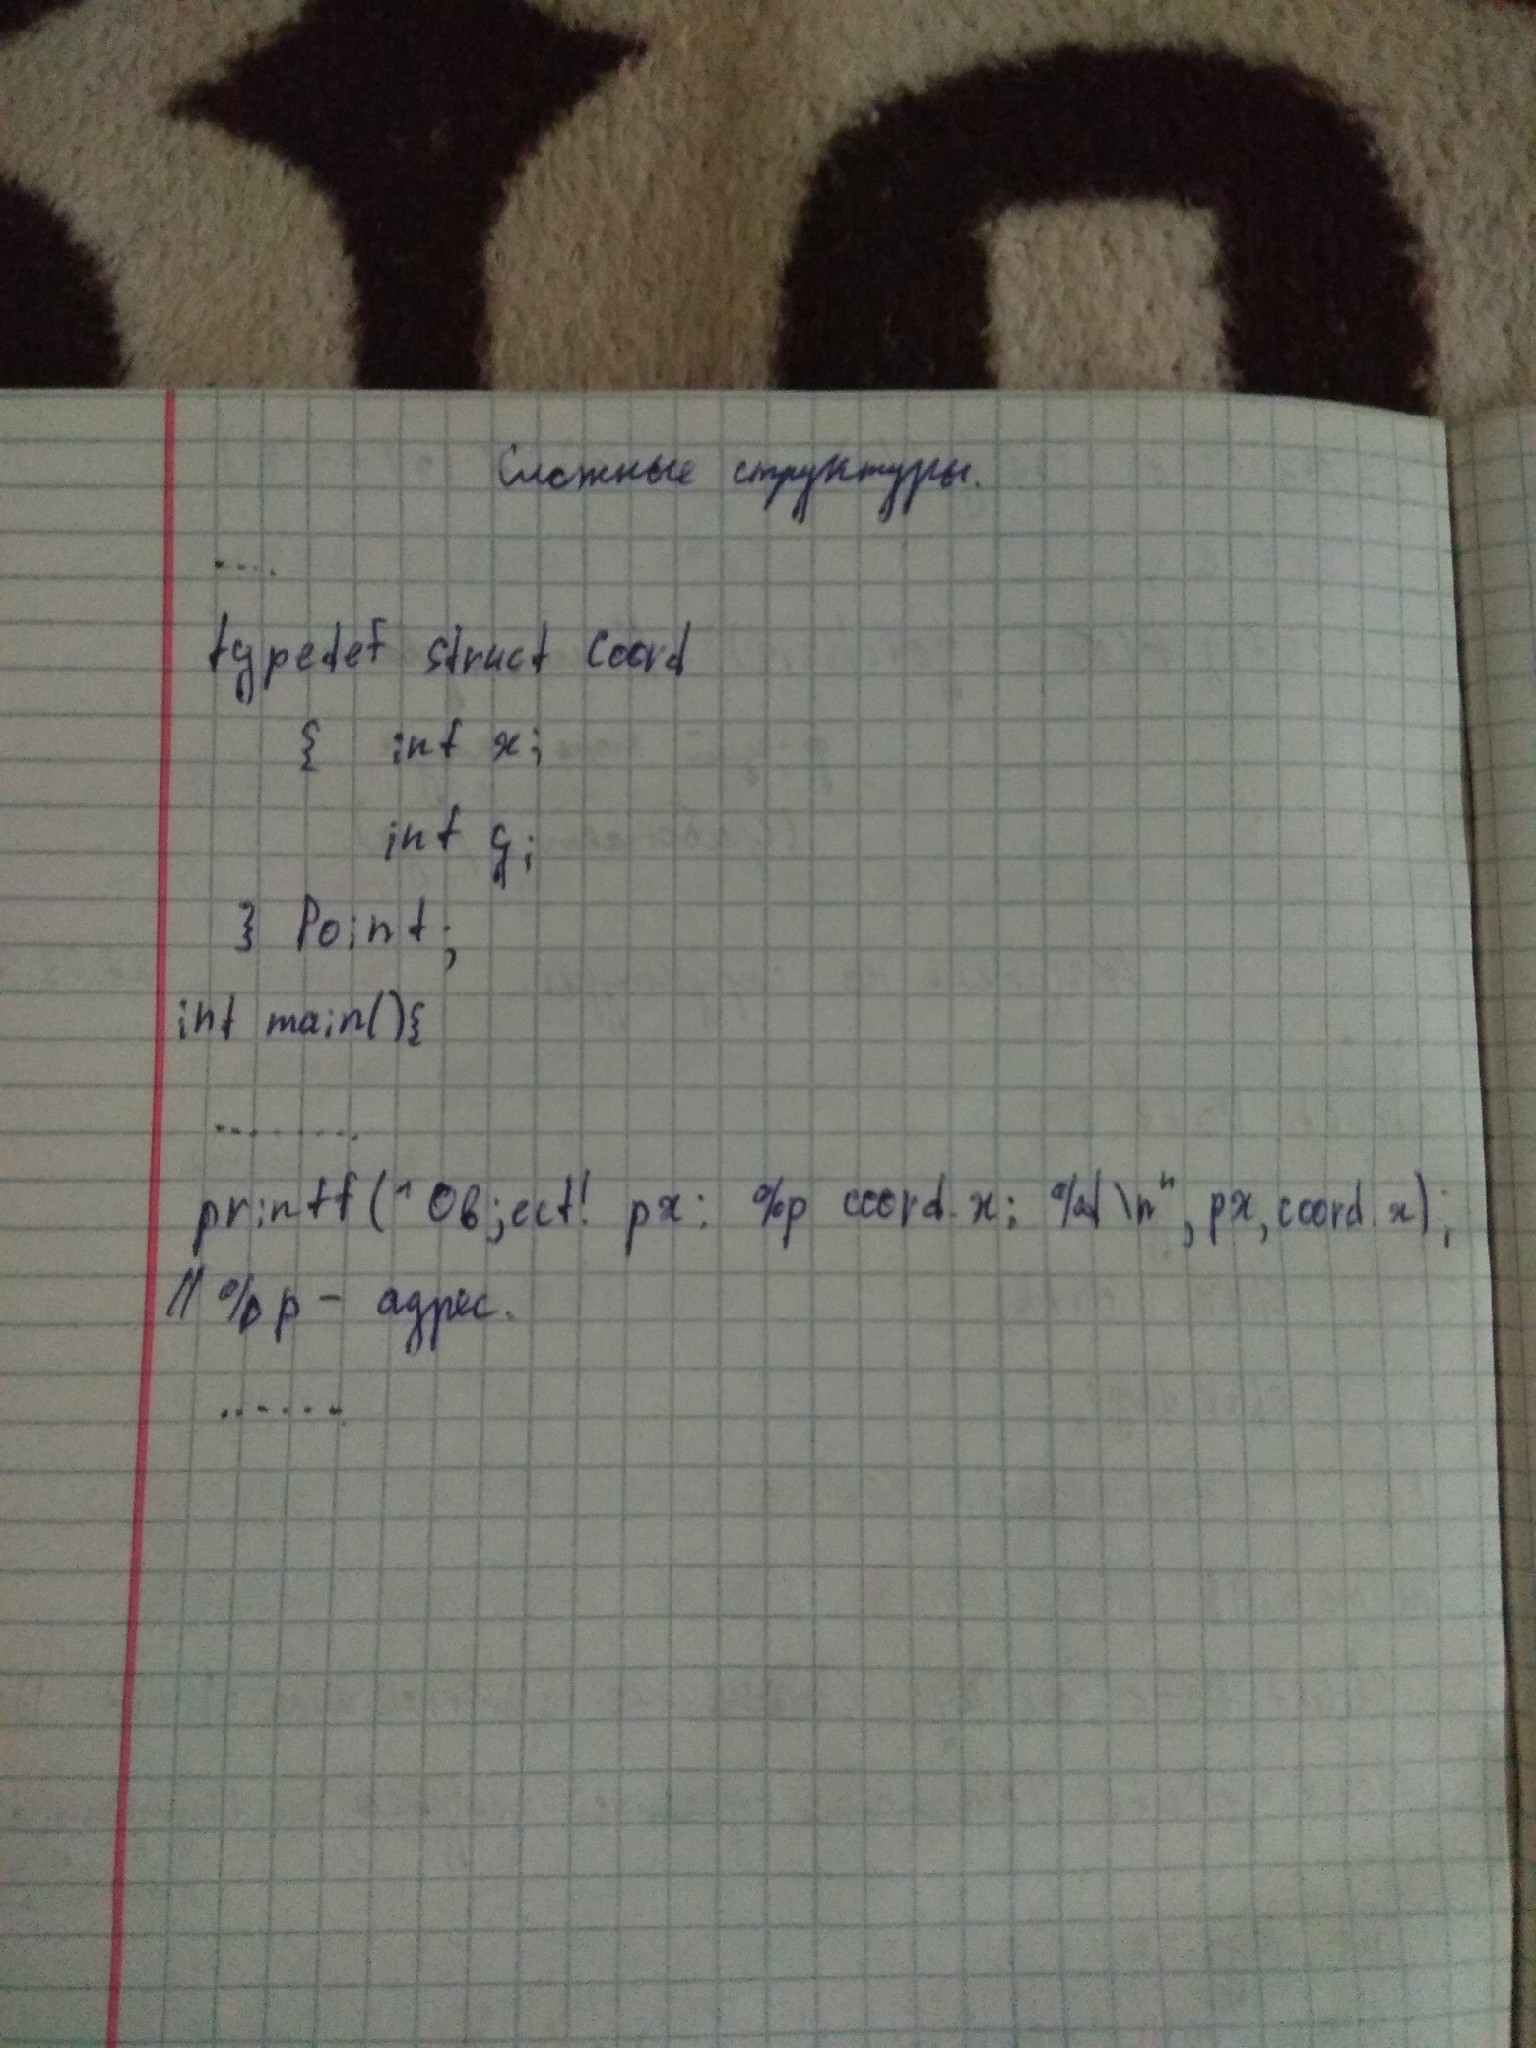 Сложные структуры.
....
typedef struct Coord
{ int x;
int y;
} Point;
int main(){
.........
printf("Object! px: %p coord.x; %d\n", px, coord.x);
// %p - адрес.
......